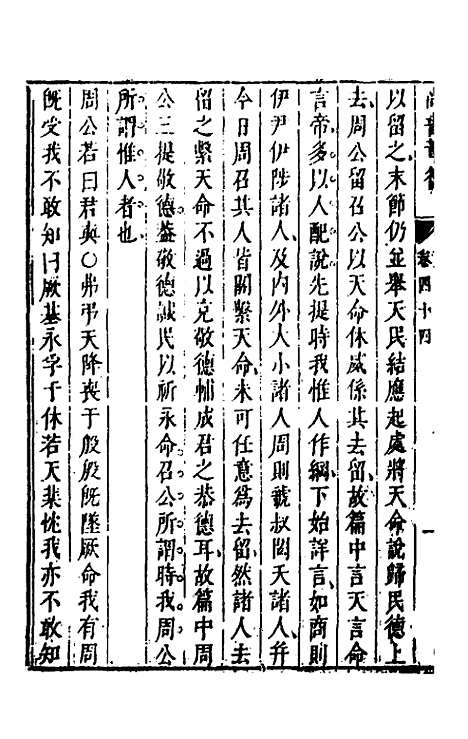 卷四十四
一
以留之末節仍並舉天民結應起處將天命說歸民德上
去周公留召公以天命休戚係其去留故篇中言天言命
言帝多以人配說先提時我惟人作綱下始詳言如商則
伊尹伊陟諸人及内外大小諸人周則虢叔閎夭諸人并
今日周召其人皆關繫天命未可任意爲去留然諸人去
留之繫天命不過以克敬德輔成君之恭德耳故篇中周
公三提敬德蓋敬德諴民以祈永命召公所謂時我周公
所謂惟人者也
周公若曰君奭〇弗弔天降喪于殷殷旣墜厥命我有周
旣受我不敢知曰厥基永孚于休若天棐忱我亦不敢知